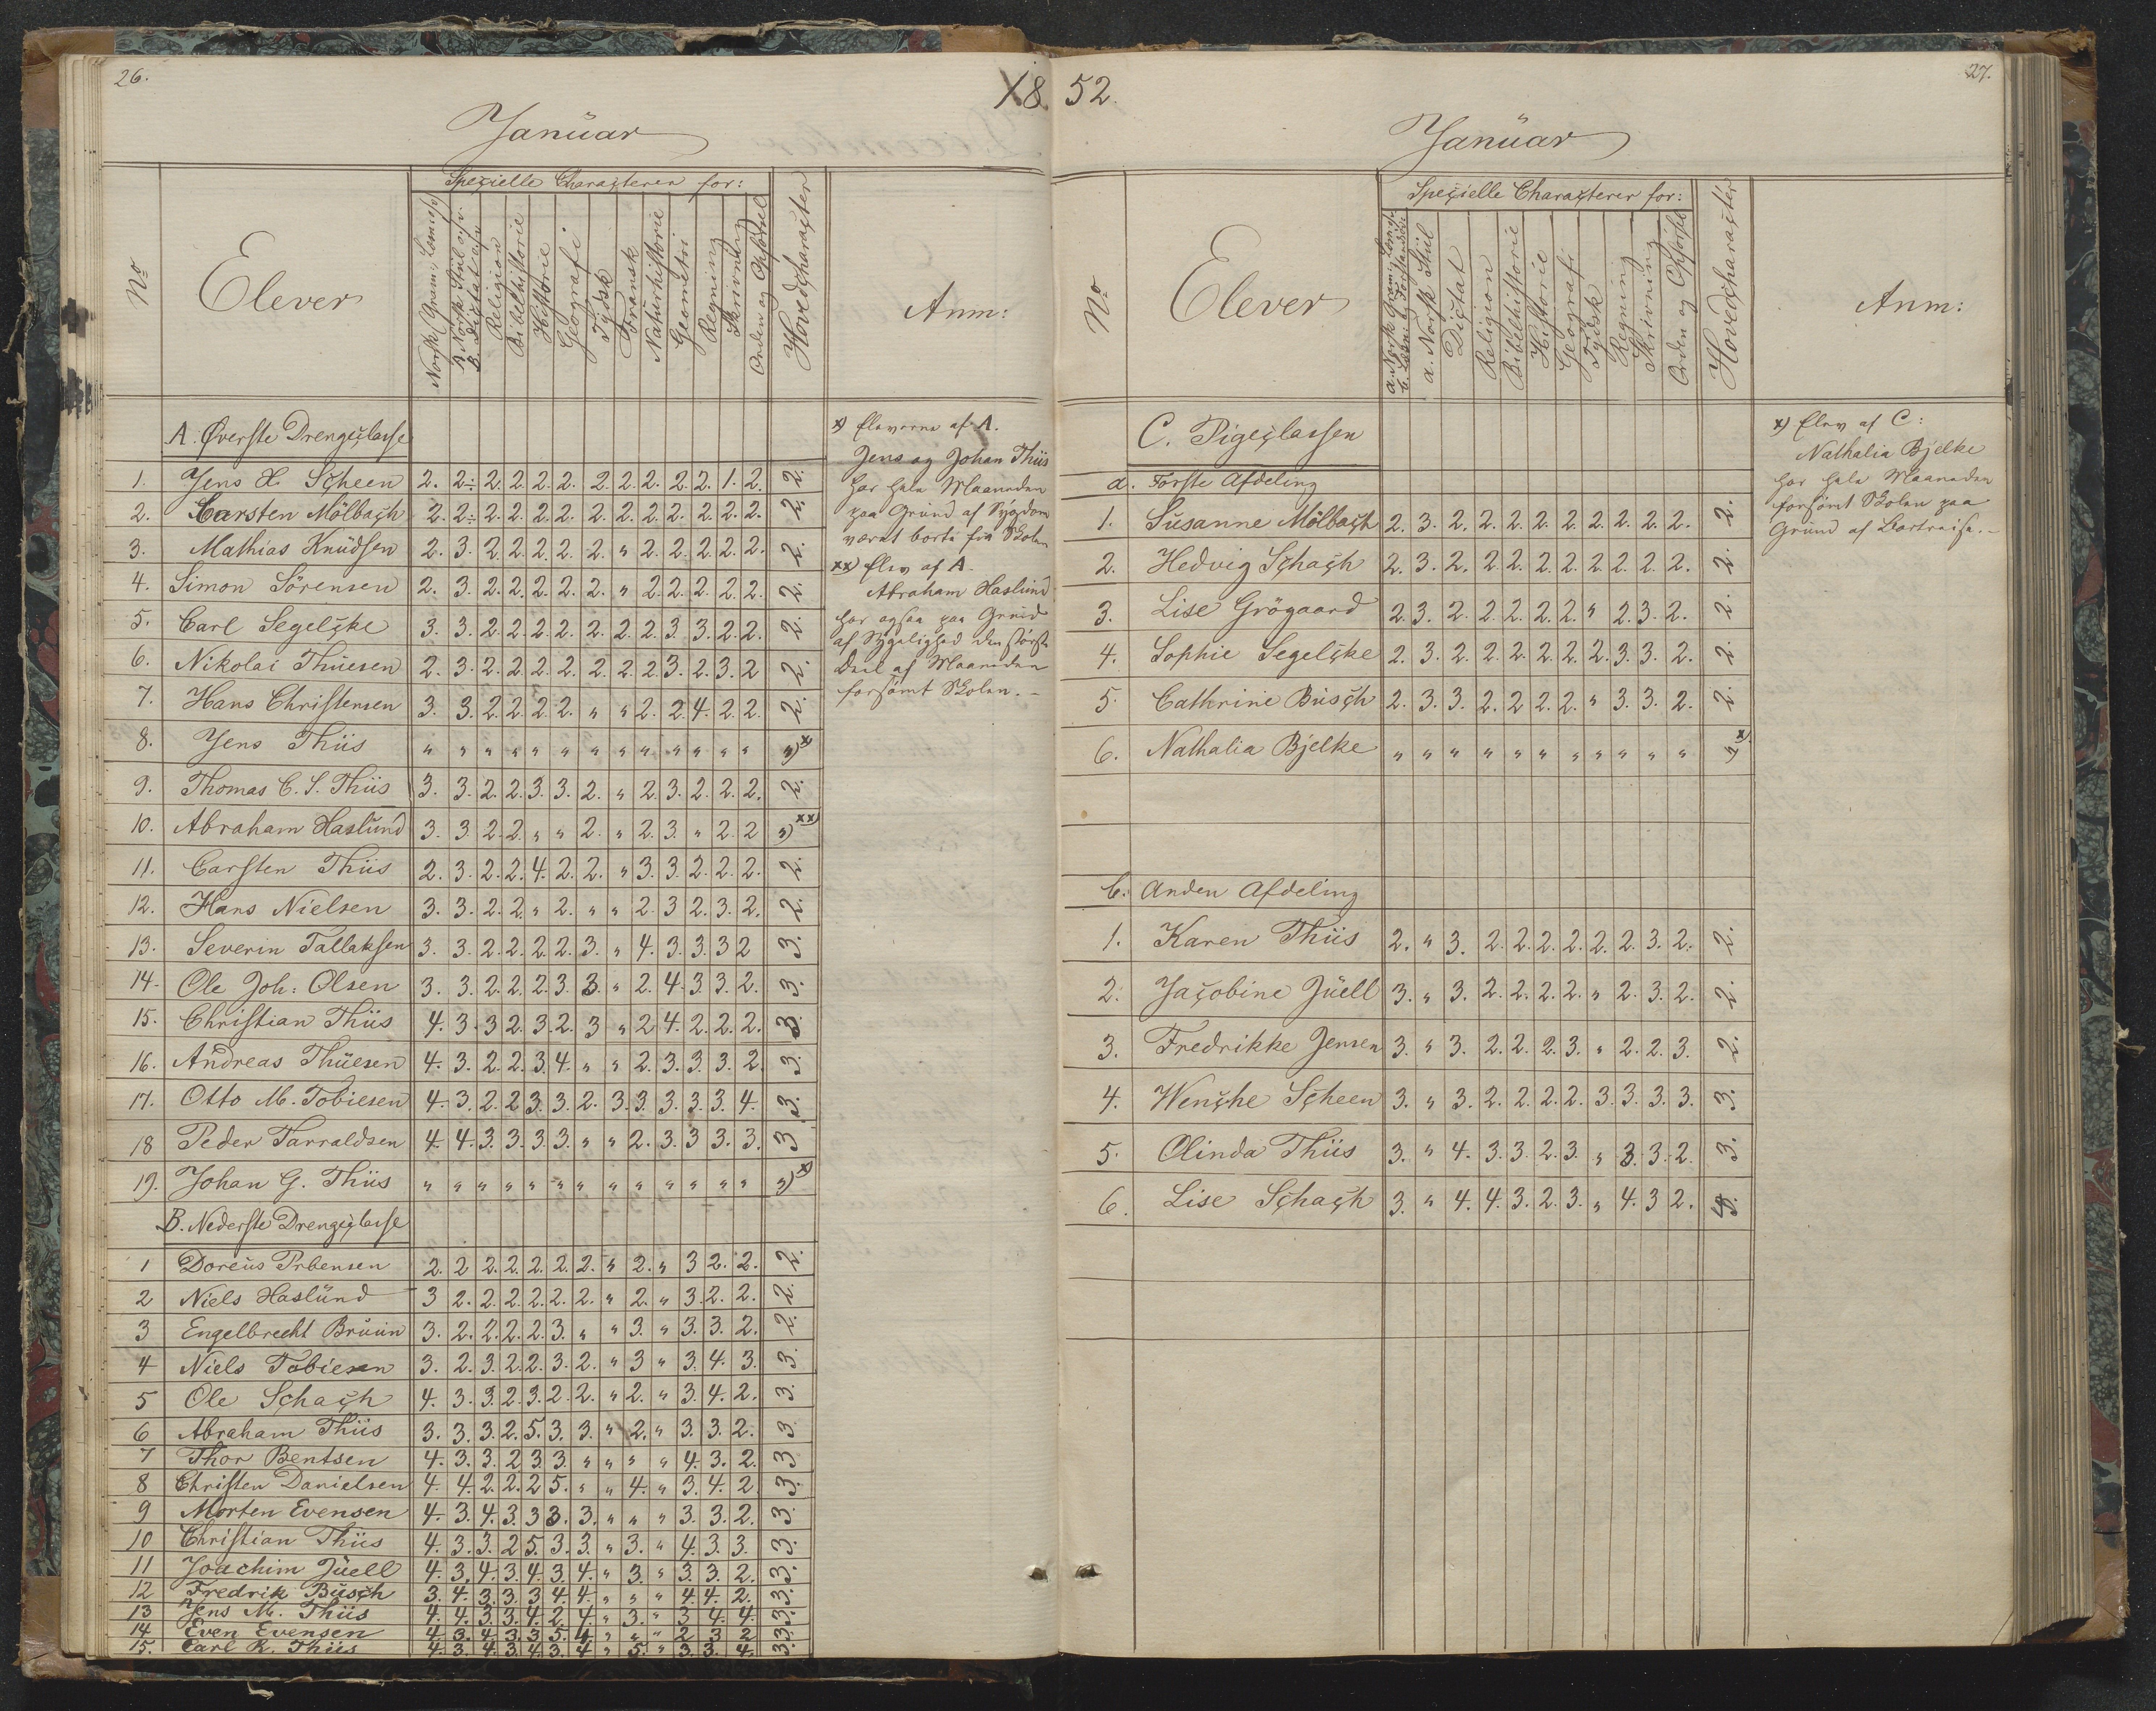 26.
18
Januar
Specielle Characterer for:
No
Elever
Norsk (Gram: Læsn:)
A. Norsk Stiil
B. Dictat
Religion
Bibelhistorie
Historie
Geografi
Tydsk
Fransk
Naturhistorie
Geometri
Regning
Skrivning
Orden og Opførsel
Hovedcharacter
Anm:
A. Øverste Drengeclasse
1. Jens H. Scheen 2. 2÷ 2. 2. 2. 2. 2. 2. 2. 2. 2. 1. 2. 2.
2. Carsten Mölbach 2. 2÷ 2. 2. 2. 2. 2. 2. 2. 2. 2. 2. 2. 2.
3. Mathias Knudsen 2. 3. 2. 2. 2. 2. 2. " 2. 2. 2. 2. 2. 2.
4. Simon Sörensen 2. 3. 2. 2. 2. 2. 2. " 2. 2. 2. 2. 2. 2.
5. Carl Segelcke 3. 3. 2. 2. 2. 2. 2. 2. 2. 3. 3. 2. 2. 2.
6. Nikolai Thuesen 2. 3. 2. 2. 2. 2. 2. 2. 2. 3. 2. 3. 2 2.
7. Hans Christensen 3. 3. 2. 2. 2. 2. " " 2. 2. 4. 2. 2. 2.
8. Jens Thiis " " " " " " " " " " " " " ") x
9. Thomas C. S. Thiis 3. 3. 2. 2. 3. 3. 2. " 2. 3. 2. 2. 2. 2.
10. Abraham Haslund 3. 3. 2. 2. " " 2. " 2. 3. " 2. 2 ") xx)
11. Carsten Thiis 2. 3. 2. 2. 4. 2. 2. " 3. 3. 2. 2. 2. 2.
12. Hans Nielsen 3. 3. 2. 2. " 2. " " 2. 3 2. 3. 2. 2.
13. Severin Tallaksen 3. 3. 2. 2. 2. 2. 3. " 4. 3. 3. 3 2 3.
14. Ole Joh: Olsen 3. 3. 2. 2. 2. 3. 3. " 2. 4. 3. 3. 2. 3.
15. Christian Thiis 4. 3. 3 2. 3. 2. 3 " 2 4. 2. 2. 2. 3.
16. Andreas Thuesen 4. 3. 2. 2. 3. 4. " " 2. 3. 3. 3. 2. 3.
17. Otto M. Tobiesen 4. 3. 2. 2 3. 3. 2. 3. 3. 3. 3. 3. 4. 3.
18 Peder Tarraldsen 4. 4. 3. 3. 3. 3. " " 2. 3. 3 3. 3. 3
19. Johan G. Thiis " " " " " " " " " " " " " ") x)
B. Nederste Drengeclasse
1 Doreus Prebensen 2. 2 2. 2. 2. 2. 2. " 2. " 3 2. 2. 2.
2 Niels Haslund 3 2. 2. 2. 2. 2. 2. " 2. " 3. 2. 2. 2.
3 Engelbrecht Bruun 3. 2. 2. 2. 2. 3. " " 3. " 3. 3. 2. 2.
4 Niels Tobiesen 3. 2. 3. 2. 2. 3. 2. " 3 " 3. 4. 3. 3.
5 Ole Schach 4. 3. 3. 2. 3. 2. 2. " 2. " 3. 4. 2. 3.
6 Abraham Thiis 3. 3. 3. 2. 5. 3. 3. " 2. " 3. 3. 2. 3.
7 Thor Bentsen 4. 3. 3. 2 3. 3. " " " " 4. 3. 2. 3
8 Christen Danielsen 4. 4. 2. 2. 2 5. " " 4. " 3. 4. 2 3.
9 Morten Evensen 4. 3. 4. 3. 3 3. 3. " " " 3. 3. 2. 3.
10 Christian Thiis 4. 3. 3. 2 5. 3. 3. " 3. " 4. 3. 3. 3.
11 Joachim Juell 4. 3. 4. 3. 4. 3. 4. " 3. " 3. 3. 2. 3.
12 Fredrik Busch 3. 4. 3. 3. 3 4. 4. " " " 4. 4. 2. 3.
13 Jens M. Thiis 4. 4. 3. 3. 4. 2. 4. " 3. " 3 4. 4. 3.
14 Even Evensen 4. 3. 4. 3. 3 5. 4. " " " 2 3 2 3.
15. Carl R. Thiis 4. 3. 4. 3. 4. 3. 4 " 5. " 3. 3. 4. 3.
x) Eleverne af A.
Jens og Johan Thiis
har hele Maaneden
paa Grund af Sygdom
været borte fra Skolen
xx) Elev af A.
Abraham Haslund
har ogsaa paa Grund
af Sygelighed den störste
Deel af Maaneden
forsömt Skolen. –
52.
27.
Januar
Specielle Characterer for:
No
Elever
a. Norsk Gram: Læsn:
b. Læsn: og Forstandsöv:
a. Norsk Stiil
Dictat
Religion
Bibelhistorie
Historie
Geografi
Tydsk
Regning
Skrivning
Orden og Opførsel
Hovedcharacter
Anm:
C. Pigeclassen
a. Förste Afdeling
1. Susanne Mölbach 2. 3. 2. 2. 2. 2. 2. 2. 2. 2. 2. 2.
2. Hedvig Schach 2. 3. 2. 2. 2. 2. 2. 2. 2. 2. 2. 2.
3. Lise Grögaard 2. 3. 2. 2. 2. 2. 2. " 2. 3. 2. 2.
4. Sophie Segelcke 2. 3. 2. 2. 2. 2. 2. 2. 3. 3. 2. 2.
5. Cathrine Busch 2. 3. 3. 2. 2 2. 2. " 3. 3. 2. 2.
6. Nathalia Bjelke " " " " " " " " " " " " x)
b. Anden Afdeling
1. Karen Thiis 2. " 3. 2. 2. 2. 2. 2. 2. 3. 2. 2.
2. Jacobine Juell 3. " 3. 2. 2. 2. 2. " 2. 3. 2. 2.
3. Fredrikke Jensen 3. " 3. 2. 2. 2. 3. " 2. 2. 3. 2.
4. Wenche Scheen 3. " 3. 2. 2. 2. 2. 3. 3. 3. 3. 3.
5. Olinda Thiis 3. " 4. 3. 3. 2. 3. " 3. 3. 2. 3.
6. Lise Schach 3. " 4. 4. 3. 2. 3. " 4. 3 2.
x) Elev af C:
Nathalia Bjelke
har hele Maaneden
forsömt Skolen paa
Grund af Bortreise. –